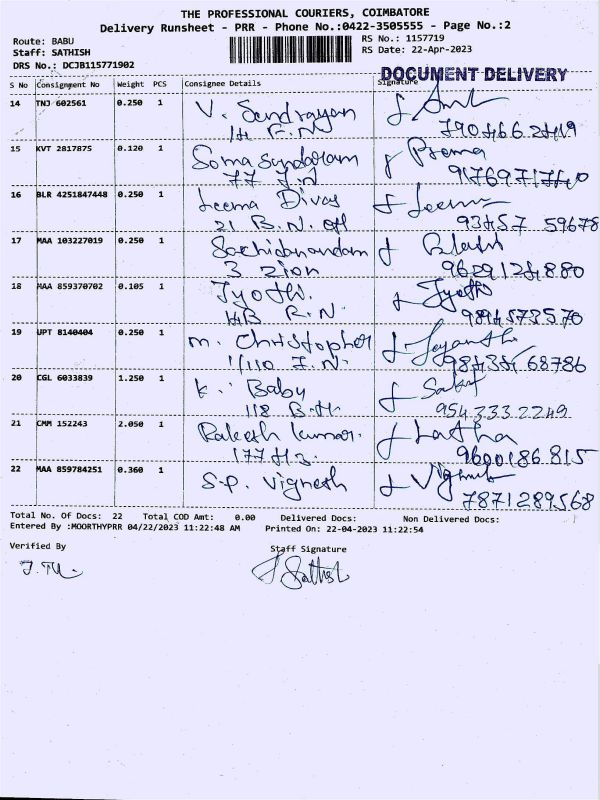 THE PROFESSIONAL COURIERS, COIMBATORE
Delivery Runsheet - PRR - Phone No.:0422-3505555 - Page No.:2
Route: BABU
RS No.: 1157719
Staff: SATHISH
RS Date: 22-Apr-2023
DRS No.: DCJB115771902
DOCUMENT DELIVERY
S No Consignment No Weight PCS Consignee Details Signature
14 TNJ 602561 0.250 1 V. Sundrayan
14 F.N
15 KVT 2817875 0.120 1 Soma Sundaram Prema
77 J.N 9176971740
16 BLR 4251847448 0.250 1 Leema Divas Leema
21 B.N. 93457 59678
17 MAA 103227019 0.250 1 Sachidanandam
3 Zion 9629124880
18 MAA 859370702 0.105 1 Jyothi. Jyothi
14B R.N. 9894573570
19 UPT 8140404 0.250 1 M. Christopher Jayanthi
1/110 J.N. 68786
20 CGL 6033839 1.250 1 K. Baby
118 B.H. 9543332249
21 CMM 152243 2.050 1 Rakesh kumar. Latha
177 H3 9600186815
22 MAA 859784251 0.360 1 S.P. Vignesh Vignesh
7871289568
Total No. Of Docs: 22 Total COD Amt: 0.00 Delivered Docs: Non Delivered Docs:
Entered By :MOORTHYPRR 04/22/2023 11:22:48 AM Printed On: 22-04-2023 11:22:54
Verified By Staff Signature
Sathish